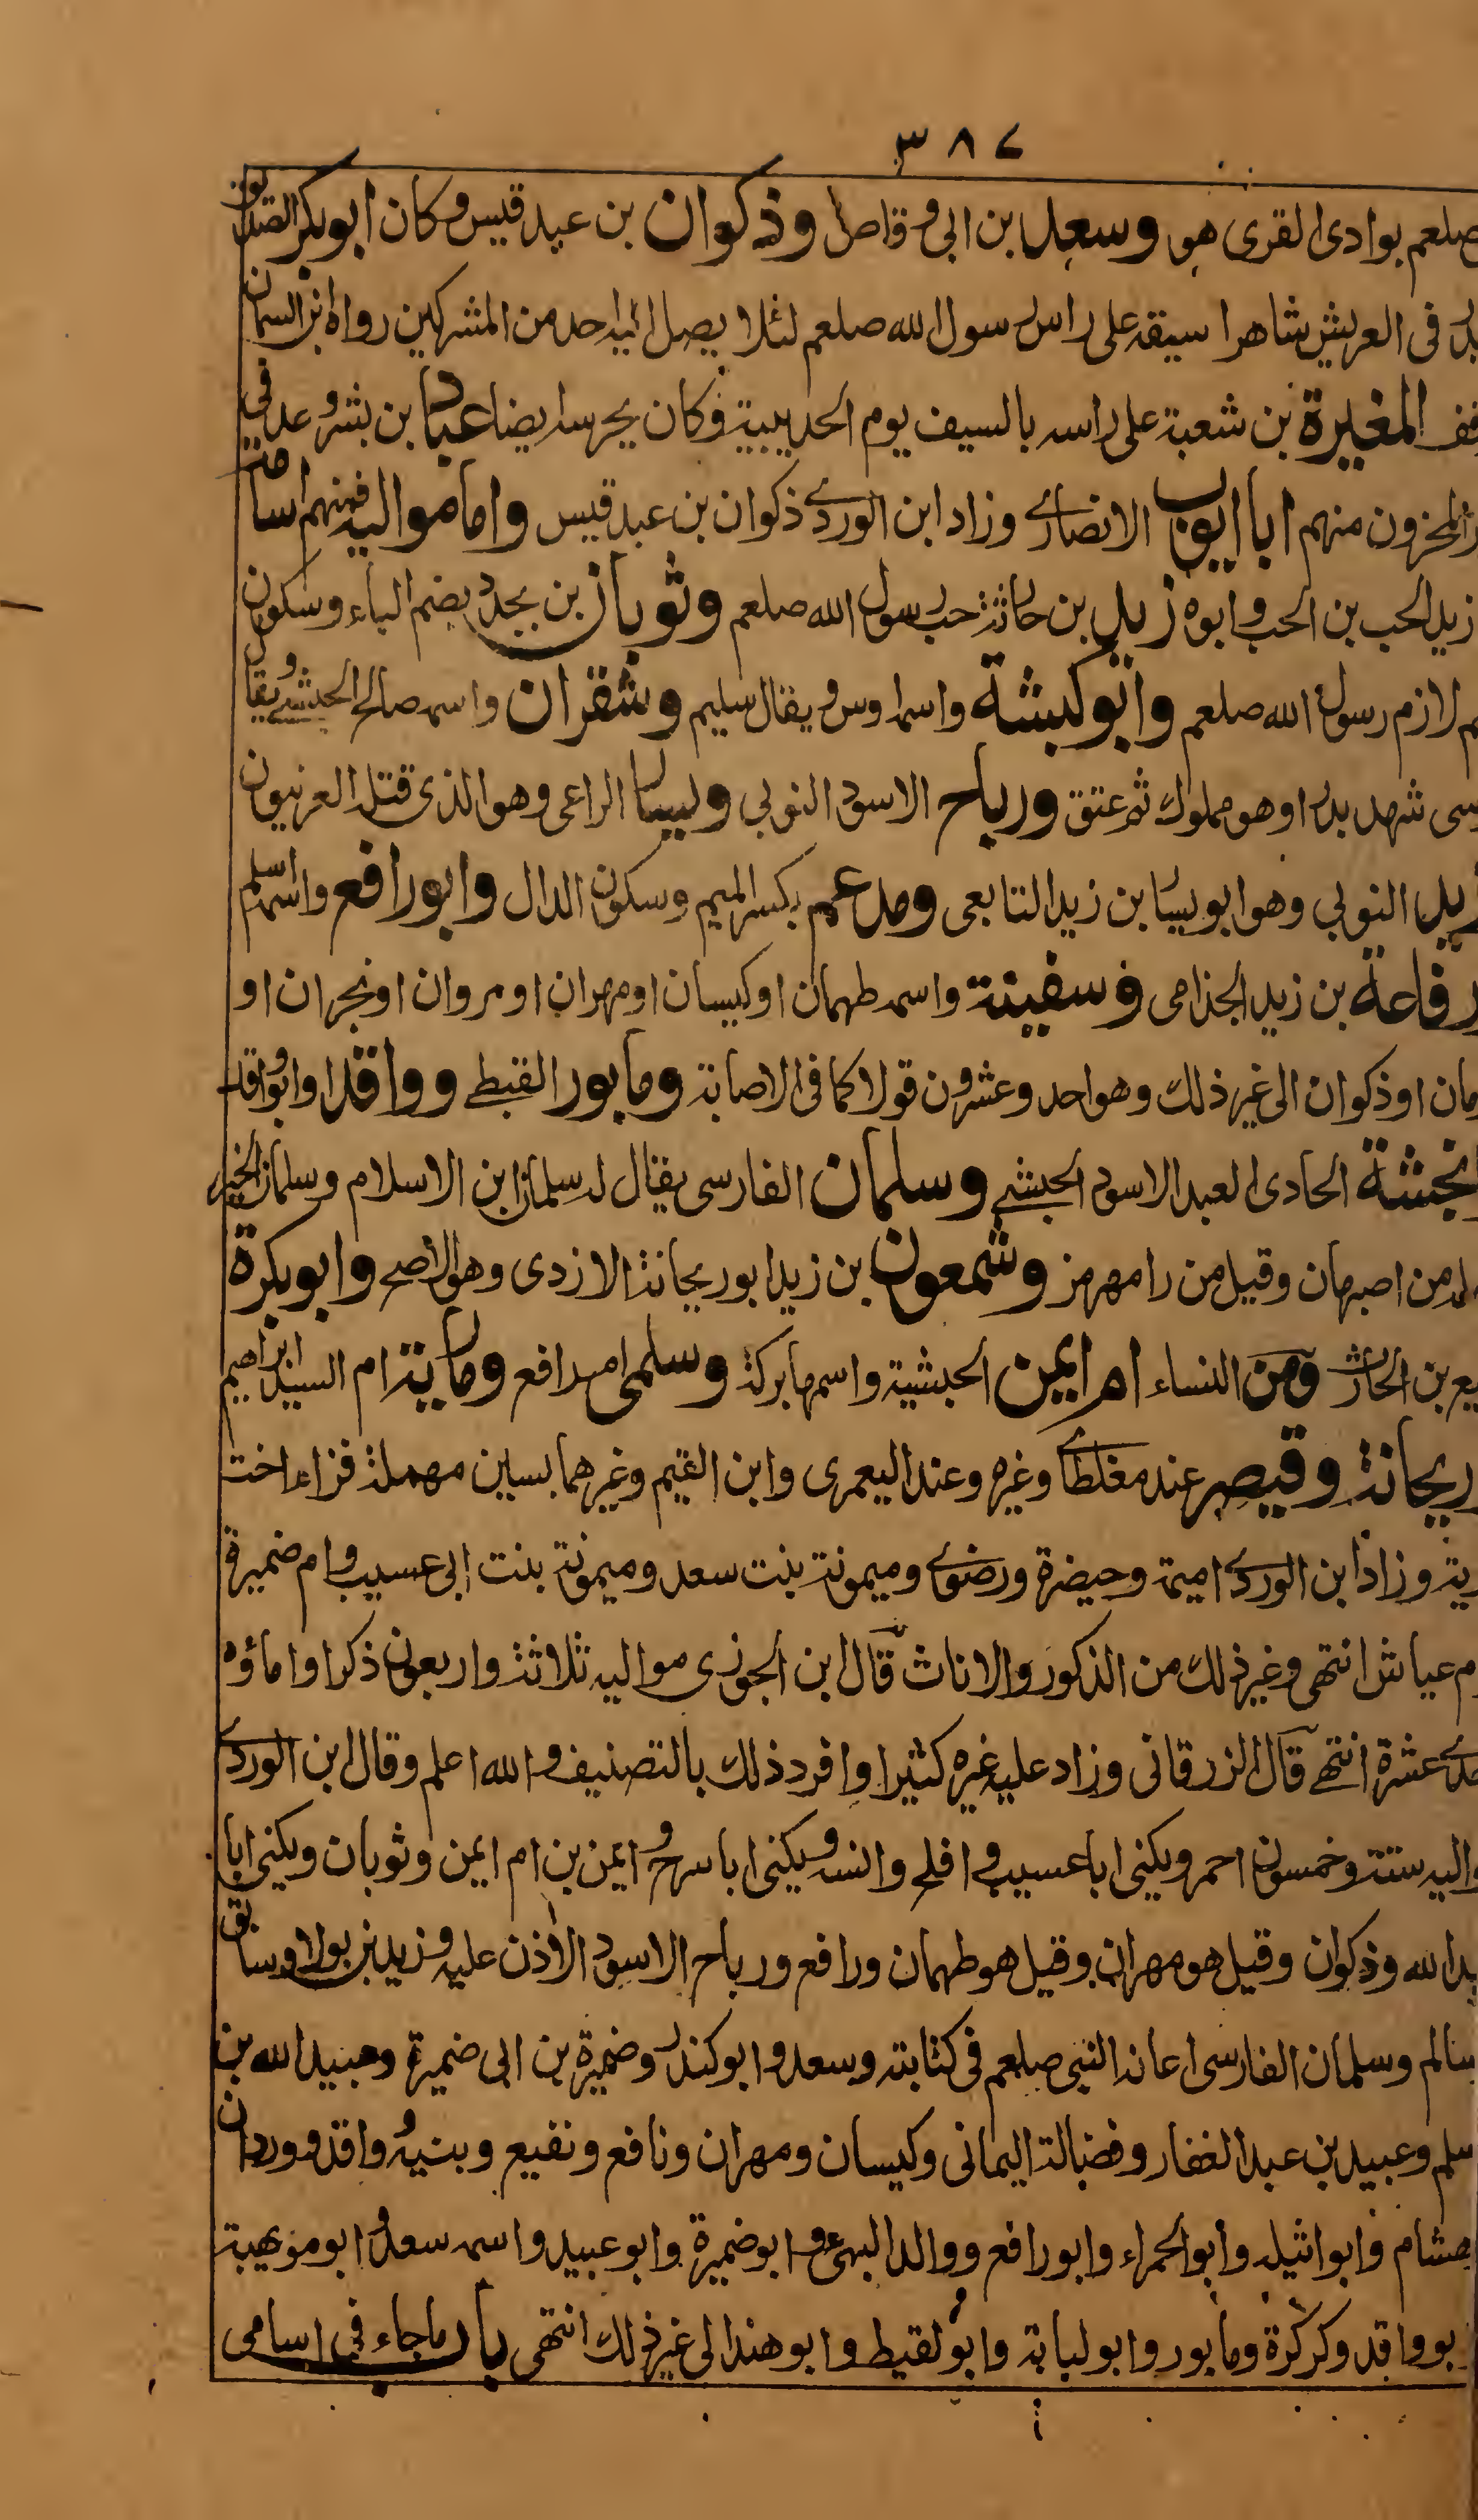 ٣٨٧
صلعم بوادى القرى هو وسعد بن ابى وقاص وذكوان بن عبد قيس وكان ابو بكر الصديق
بدر فى العريش شاهرا سيفه على راس رسول الله صلعم لئلا يصل اليه احد من المشركين رواه ابن السمان
المغيرة بن شعبة على راسه بالسيف يوم الحديبية وكان يحرسه ايضا عباد بن بشر وعد فى
المخزون منهم ابا ايوب الانصارى وزاد ابن الوردى ذكوان بن عبد قيس واما مواليه فمنهم اسامة
زيد الحب بن الحب وابوه زيد بن حارثة حب رسول الله صلعم وثوبان بن بجدد بضم الباء وسكون
لازم رسول الله صلعم وابو كبشة واسمه اوس ويقال سليم وشقران واسمه صالح الحبشى ويقال
شهد بدرا وهو مملوك ثم عتق ورباح الاسود النوبى ويسار الراعى وهو الذى قتله العرنيون
زيد النوبى وهو ابو يسار بن زيد التابعى ومدعم بكسر الميم وسكون الدال وابو رافع واسمه اسلم
رفاعة بن زيد الجذامى وسفينة واسمه طهمان او كيسان او مهران او مروان او نجران او
مان او ذكوان الى غير ذلك وهو احد وعشرون قولا كما فى الاصابة ومابور القبطى وواقد او ابو واقد
انجشة الحادى العبد الاسود الحبشى وسلمان الفارسى يقال له سلمان ابن الاسلام وسلمان الخير
من اصبهان وقيل من رامهرمز وشمعون بن زيد ابو ريحانة الازدى وهو الاصح وابو بكرة
يع بن الحارث ومن النساء ام ايمن الحبشية واسمها بركة وسلمى ام رافع ومارية ام السيد ابراهيم
ريحانة وقيصر عند مغلطاى وغيره وعند اليعمرى وابن القيم وغيرهما بسين مهملة فزاء اخت
رية وزاد ابن الوردى اميمة وحيضرة ورضوى وميمونة بنت سعد وميمونة بنت ابى عسيب وام ضميرة
م عياش انتهى وغير ذلك من الذكور والاناث قال ابن الجوزى مواليه ثلاثة واربعون ذكرا واماؤه
حدى عشرة انتهى قال الزرقانى وزاد عليه غيره كثيرا وافرد ذلك بالتصنيف والله اعلم وقال ابن الوردى
واليه ستة وخمسون احمر ويكنى ابا عسيب وافلح وانسه ويكنى ابا سرح وايمن بن ام ايمن وثوبان ويكنى ابا
بد الله وذكوان وقيل هو مهران وقيل هو طهمان ورافع ورباح الاسود الاذن عليه وزيد بن بولا وسابق
سالم وسلمان الفارسى اعانه النبى صلعم فى كتابته وسعد وابو كندر وضميرة بن ابى ضميرة وعبيد الله بن
سلم وعبيد بن عبد الغفار وفضالة اليمانى وكيسان ومهران ونافع ونفيع وبنيه وواقد ووردان
هشام وابو اثيله وابو الحمراء وابو رافع ووالد البهى وابو ضميرة وابو عبيد واسمه سعد وابو مويهبة
بو واقد وكركرة ومابور وابو لبابة وابو لقيط وابو هند الى غير ذلك انتهى باب ما جاء فى اسامى